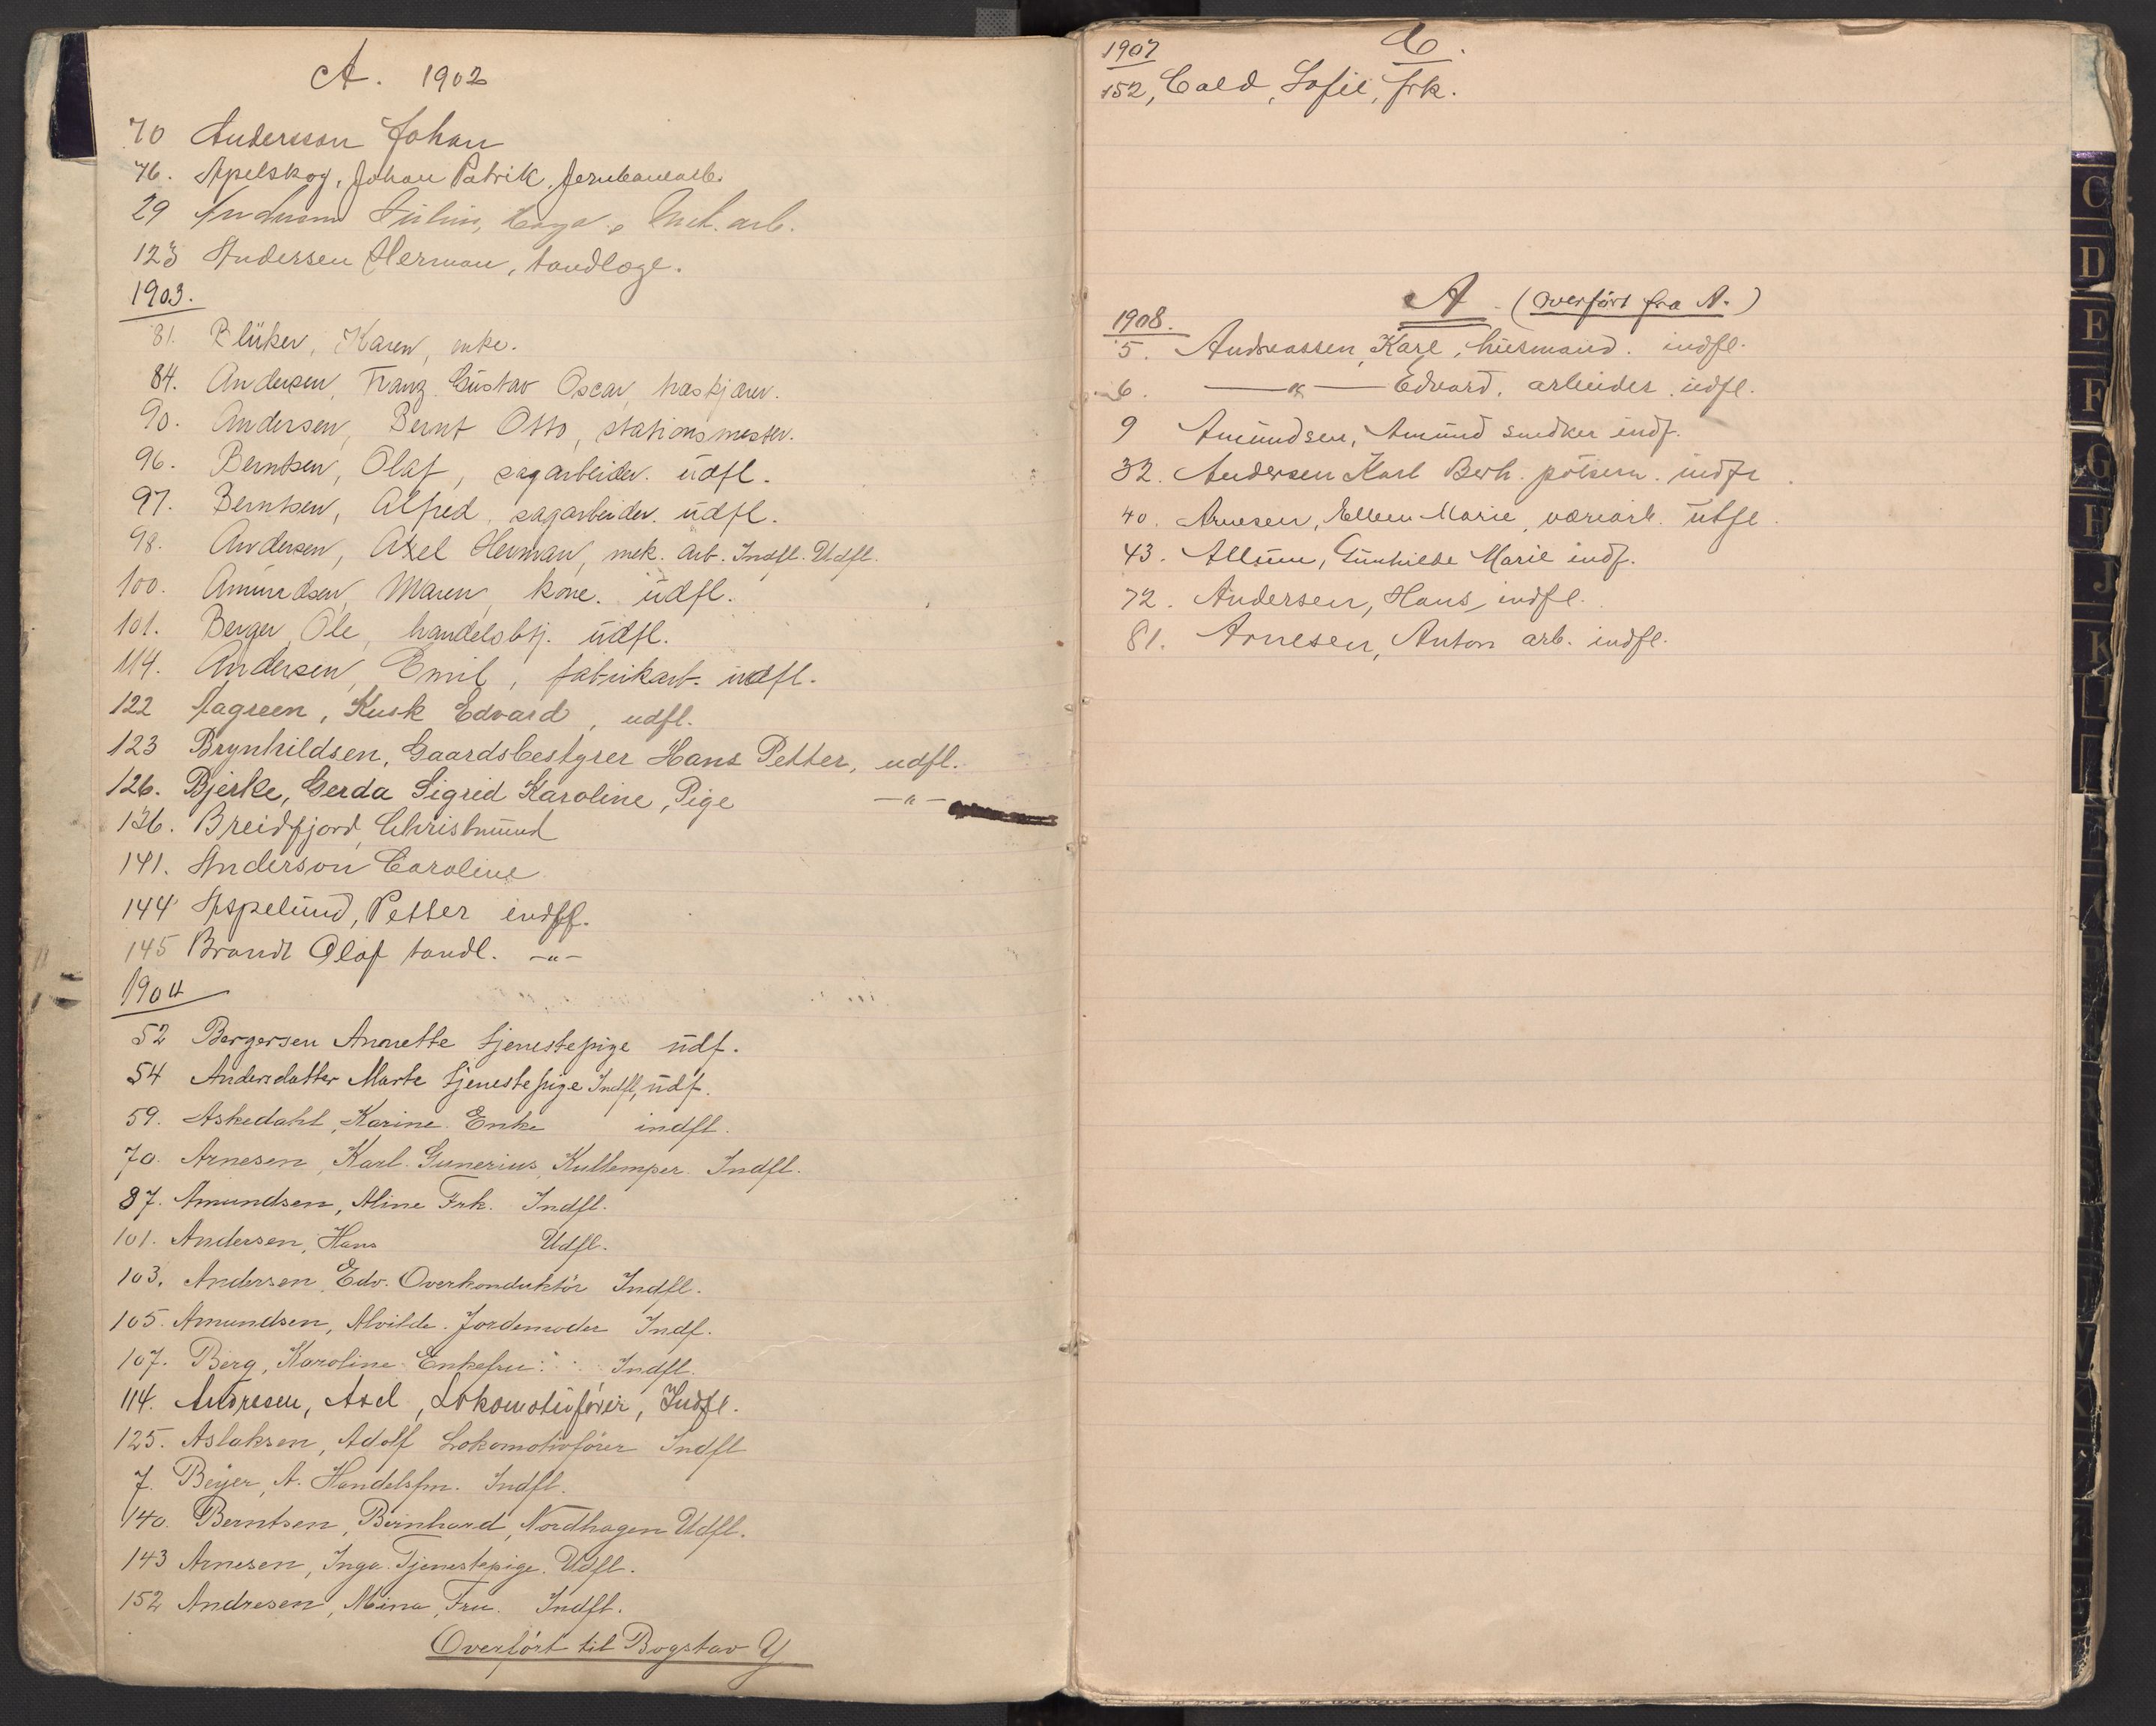 A. 1902
70 Andersson Johan
76. Apelskog, Johan Patrik, Jernbanearb.
29 Julius, mek. arb.
123 Andersen Herman, tandlæge.
1903.
81. Blüker, Karen, enke.
84. Andersen, Franz Gustav Oscar, træskjærer.
90. Andersen, Bernt Otto, stationsmester.
96. Berntsen, Olaf, sagarbeider. udfl.
97. Berntsen, Alfred, sagarbeider. udfl.
98. Andersen, Axel Herman, mek. arb. Indfl. Udfl.
100. Amundsen, Maren, kone. udfl.
101. Berger, Ole, handelsbtj. udfl.
114. Andersen, Emil, fabrikarb. indfl.
122 Aagreen, Kusk Edvard, udfl.
123 Brynhildsen, Gaardsbestyrer Hans Petter, udfl.
126. Bjerke, Gerda Sigrid Karoline, Pige —"—
136. Breidfjord, Christmund
141. Anderson Caroline
144 Aspelund, Petter indfl.
145 Brandt Olaf tandl. —"—
1904
52 Bergersen Annette tjenestepige udf.
54 Andersdatter Marte tjenestepige Indfl, udf.
59. Askedahl, Karine. Enke indfl.
70. Arnesen, Karl Gunerius, Kullemper. Indfl.
87. Amundsen, Aline Frk. Indfl.
101. Andersen, Hans Udfl.
103. Andersen, Edv. Overkonduktör Indfl.
105. Amundsen, Alvilde. Jordemoder Indf.
107. Berg, Karoline Enkefru. Indfl.
114. Andresen, Axel, Lokomotivfører, Indfl.
125. Aslaksen, Adolf Lokomotivfører Indfl
7. Beyer, A. Handelsfm. Indfl.
140. Berntsen, Bernhard, Nordhagen Udfl.
143 Arnesen, Inga. Tjenestepige. Udfl.
152 Andresen, Mina, Fru. Indfl.
Overfört til Bogstav Y
1907 C.
152, Cald, Sofie, frk.
A. (overført fra A.)
1908.
5. Andreassen, Karl, husmand. indfl.
6. —"— Edvard, arbeider. udfl.
9 Amundsen, Amund snedker indf.
32. Andersen Karl Berh. indfl
40. Arnesen, Ellen Marie, udfl.
43. Allum, Gunhilde Marie indf.
72. Andersen, Hans, indfl.
81. Arnesen, Anton arb. indfl.
C
D
E
F
G
H
J
K